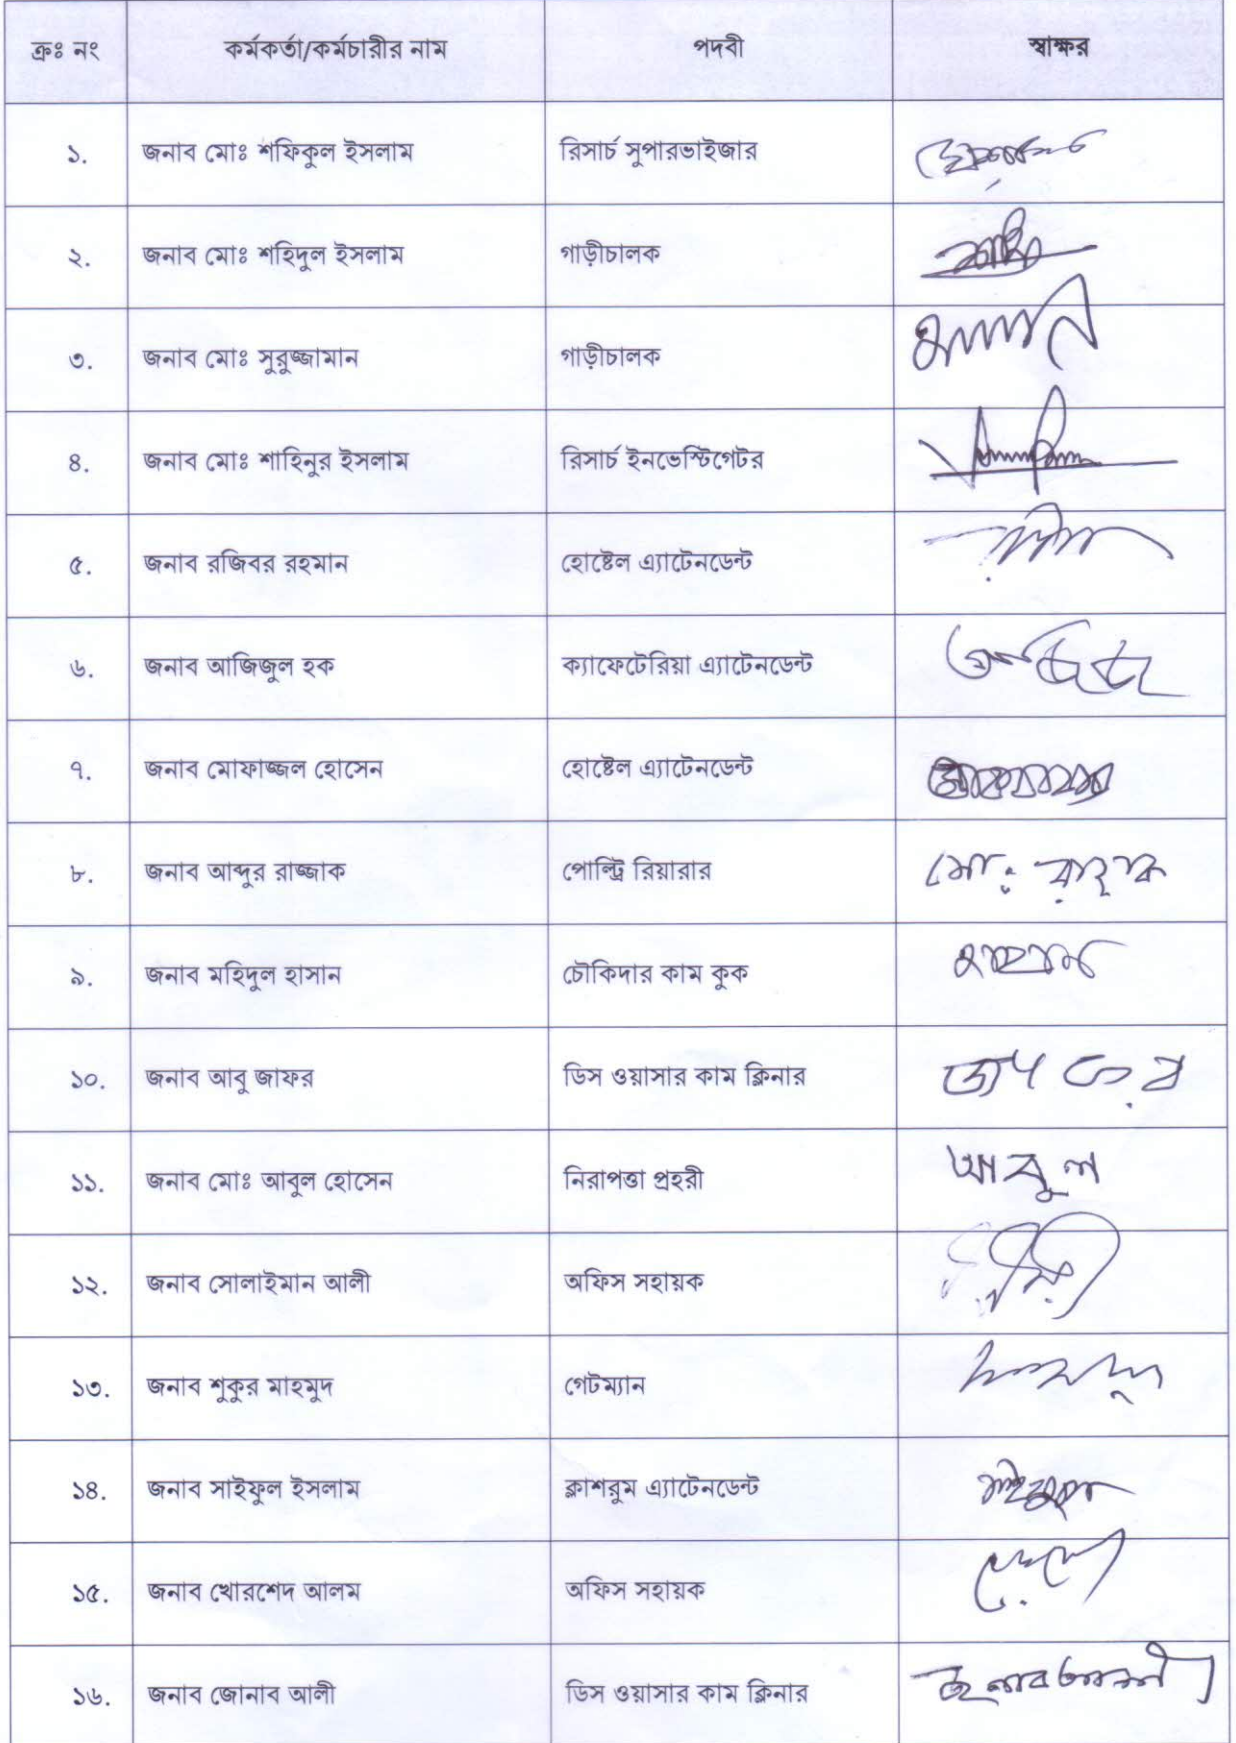 ক্রঃ নং কর্মকর্তা/কর্মচারীর নাম পদবী স্বাক্ষর
১. জনাব মোঃ শফিকুল ইসলাম রিসার্চ সুপারভাইজার
২. জনাব মোঃ শহিদুল ইসলাম গাড়ীচালক
৩. জনাব মোঃ সুরুজ্জামান গাড়ীচালক
৪. জনাব মোঃ শাহিনুর ইসলাম রিসার্চ ইনভেস্টিগেটর
৫. জনাব রজিবর রহমান হোষ্টেল এ্যাটেনডেন্ট
৬. জনাব আজিজুল হক ক্যাফেটেরিয়া এ্যাটেনডেন্ট
৭. জনাব মোফাজ্জল হোসেন হোষ্টেল এ্যাটেনডেন্ট
৮. জনাব আব্দুর রাজ্জাক পোল্ট্রি রিয়ারার
৯. জনাব মহিদুল হাসান চৌকিদার কাম কুক
১০. জনাব আবু জাফর ডিস ওয়াসার কাম ক্লিনার
১১. জনাব মোঃ আবুল হোসেন নিরাপত্তা প্রহরী আবুল
১২. জনাব সোলাইমান আলী অফিস সহায়ক
১৩. জনাব শুকুর মাহমুদ গেটম্যান
১৪. জনাব সাইফুল ইসলাম ক্লাশরুম এ্যাটেনডেন্ট
১৫. জনাব খোরশেদ আলম অফিস সহায়ক
১৬. জনাব জোনাব আলী ডিস ওয়াসার কাম ক্লিনার